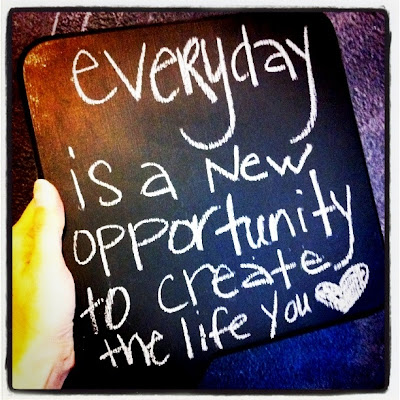 everyday
is a New
opportunity
to create
the life you ♥